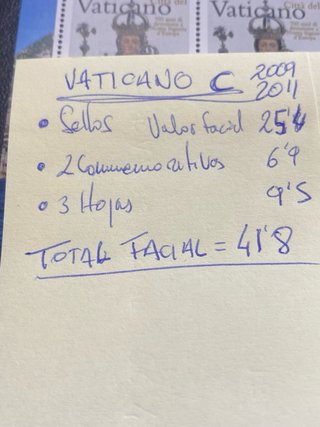 Città del
Vaticano Vaticano
VATICANO C 2009
2011
• Sellos Valor facial 25'4
• 2 Conmemorativos 6'9
• 3 Hojas 9'5
TOTAL FACIAL = 41'8